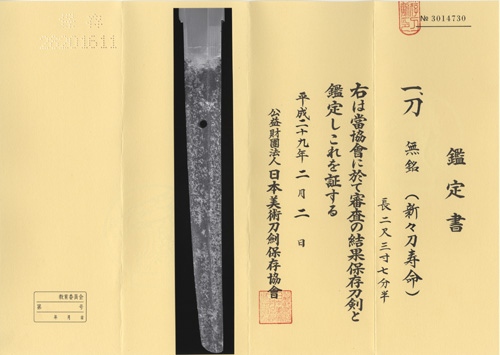 № 3014730
鑑定書
一、刀 無銘（新々刀寿命）
長二又三寸七分半
右は當協會に於て審査の結果保存刀剣と
鑑定しこれを証する
平成二十九年二月二日
公益財團法人 日本美術刀劍保存協會
教育委員会
第 号
年 月 日